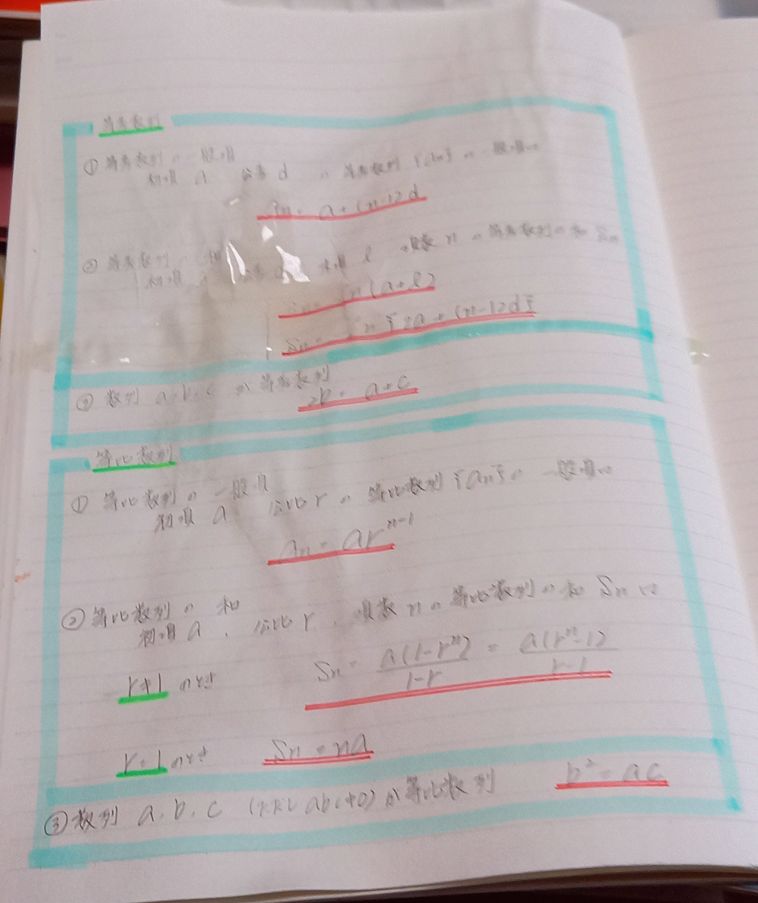 等差数列
① 等差数列の一般項
初項 a 公差 d の等差数列 {an} の一般項は
an = a + (n-1)d
② 等差数列の和
初項 公差 末項 l 項数 n の等差数列の和 Sn
n(a+l)
Sn = n{2a + (n-1)d}
③ 数列 a, b, c が等差数列
2b = a + c
等比数列
① 等比数列の一般項
初項 a 公比 r の等比数列 {an} の一般項は
an = ar^{n-1}
② 等比数列の和
初項 a, 公比 r, 項数 n の等比数列の和 Sn は
r≠1 のとき Sn = a(1-r^n)/(1-r) = a(r^n-1)/(r-1)
r=1 のとき Sn = na
③ 数列 a, b, c (ただし abc≠0) が等比数列 b² = ac